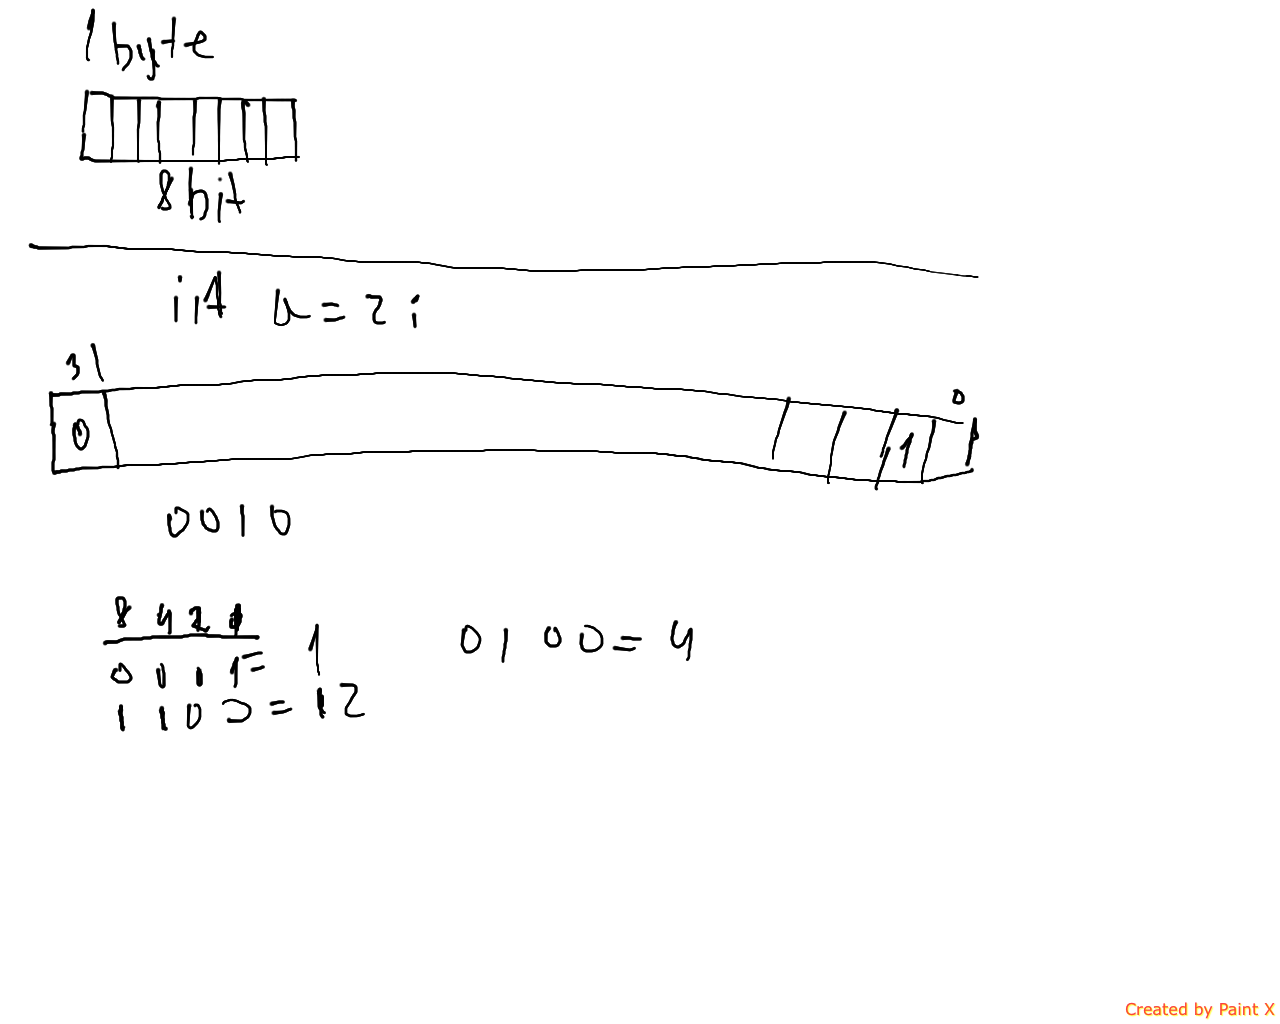 1 byte
8 bit
int a = 2;
31
0
0 1
0010
8 4 2 1
0 0 0 1 = 1
0 1 0 0 = 4
1 1 0 0 = 12
Created by Paint X